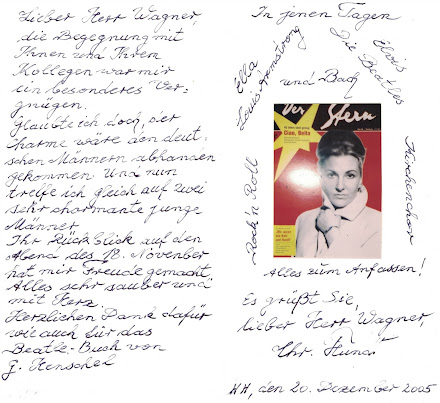 Lieber Herr Wagner,
die Begegnung mit
Ihnen und Ihrem
Kollegen war mir
ein besonderes Ver-
gnügen.
Glaubte ich doch, der
Charme wäre den deut-
schen Männern abhanden
gekommen. Und nun
treffe ich gleich auf zwei
sehr charmante junge
Männer.
Ihr Rückblick auf den
Abend des 18. November
hat mir Freude gemacht.
Alles sehr sauber und
mit Herz.
Herzlichen Dank dafür
wie auch für das
Beatle-Buch von
G. Henschel
In jenen Tagen
Ella
Louis Armstrong
und Bach
Die Beatles
Elvis
Rock'n Roll
Kirchenchor
Der Stern
Ciao, Bella
Alles zum Anfassen!
Es grüßt Sie,
lieber Herr Wagner,
Ihr
HH, den 20. Dezember 2005